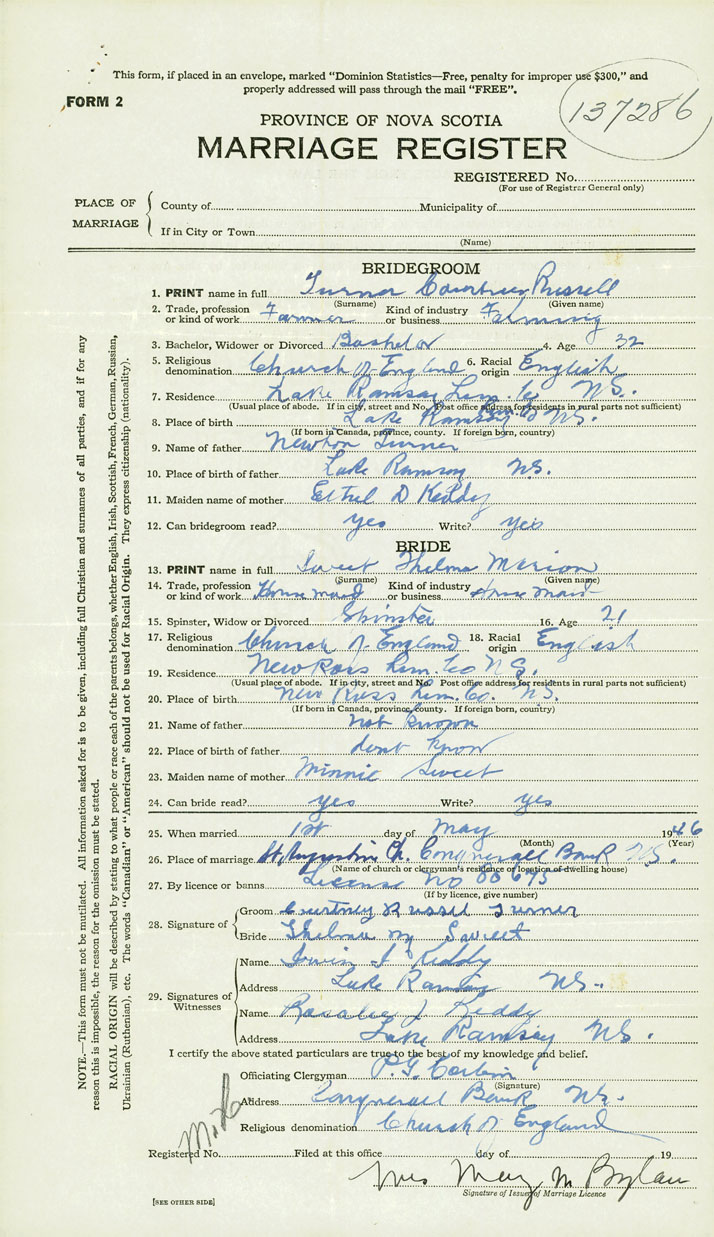 This form, if placed in an envelope, marked "Dominion Statistics—Free, penalty for improper use $300," and
properly addressed will pass through the mail "FREE".
FORM 2
137286
PROVINCE OF NOVA SCOTIA
MARRIAGE REGISTER
REGISTERED No.
(For use of Registrar General only)
PLACE OF MARRIAGE
County of Municipality of
If in City or Town
(Name)
BRIDEGROOM
1. PRINT name in full Turner Russell
(Surname) (Given name)
2. Trade, profession or kind of work Farmer Kind of industry or business Farming
3. Bachelor, Widower or Divorced Bachelor 4. Age 32
5. Religious denomination Church of England 6. Racial origin English
7. Residence Lake Ramsay Lun. Co N.S.
(Usual place of abode. If in city, street and No. Post office address for residents in rural parts not sufficient)
8. Place of birth Lake Ramsay Lun Co N.S.
(If born in Canada, province, county. If foreign born, country)
9. Name of father Newton Turner
10. Place of birth of father Lake Ramsay N.S.
11. Maiden name of mother Ethel D Keddy
12. Can bridegroom read? yes Write? yes
BRIDE
13. PRINT name in full Sweet Thelma Marion
(Surname) (Given name)
14. Trade, profession or kind of work House maid Kind of industry or business House maid
15. Spinster, Widow or Divorced Spinster 16. Age 21
17. Religious denomination Church of England 18. Racial origin English
19. Residence New Ross Lun. Co N.S.
(Usual place of abode. If in city, street and No. Post office address for residents in rural parts not sufficient)
20. Place of birth New Ross Lun. Co. N.S.
(If born in Canada, province, county. If foreign born, country)
21. Name of father not known
22. Place of birth of father dont know
23. Maiden name of mother Minnie Sweet
24. Can bride read? yes Write? yes
25. When married 1st day of May 1946
(Month) (Year)
26. Place of marriage St. Augustin Ch. Conquerall Bank N.S.
(Name of church or clergyman's residence or location of dwelling house)
27. By licence or banns License No 00675
(If by licence, give number)
28. Signature of
Groom Courtney Russel Turner
Bride Thelma M Sweet
29. Signatures of Witnesses
Name Keddy
Address Lake Ramsay N.S.
Name Rosalie J Keddy
Address Lake Ramsay N.S.
I certify the above stated particulars are true to the best of my knowledge and belief.
Officiating Clergyman P.G. Corbin
(Signature)
Address Conquerall Bank N.S.
Religious denomination Church of England
Registered No. Filed at this office day of 19
Mrs May M
Signature of Issuer of Marriage Licence
[SEE OTHER SIDE]
NOTE.—This form must not be mutilated. All information asked for is to be given, including full Christian and surnames of all parties, and if for any
reason this is impossible, the reason for the omission must be stated.
RACIAL ORIGIN will be described by stating to what people or race each of the parents belongs, whether English, Irish, Scottish, French, German, Russian,
Ukrainian (Ruthenian), etc. The words "Canadian" or "American" should not be used for Racial Origin. They express citizenship (nationality).